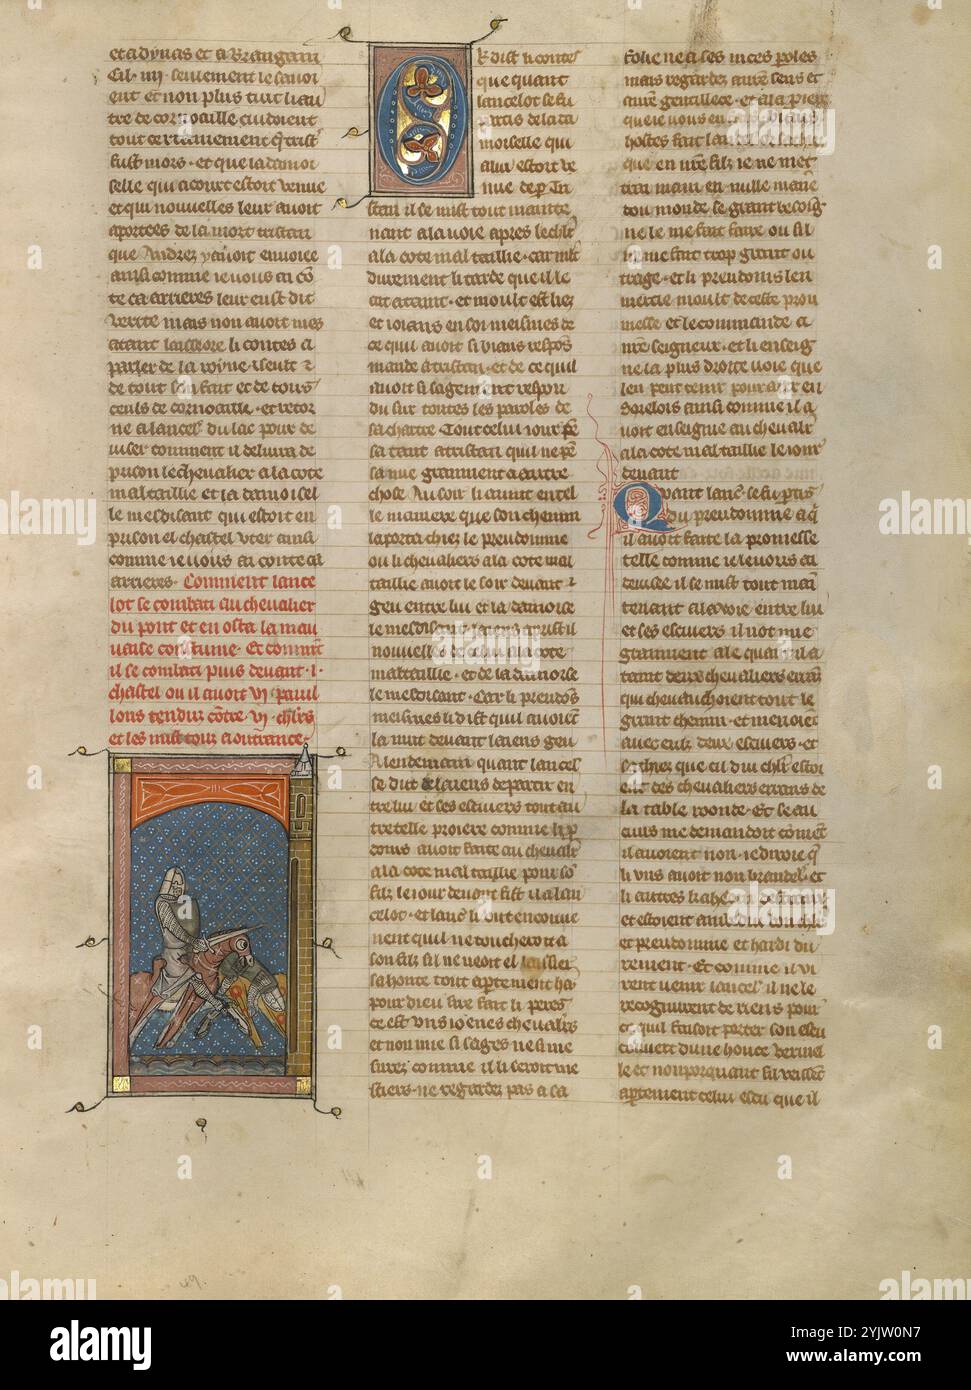 et adynas et a Brangain
Cil .iiij. seulement le savoi
ent et non plus tuit li au
tre de cornoaille cuidoient
tout certainement que tristan
fust mors. et que la damoi
selle qui acourt estoit venue
et qui nouvelles leur avoit
aportees de la mort tristan
que Andrez y avoit envoiee
ainsi comme ie vous ai con
te ca arrieres leur eust dit
verite mais non avoit mes
atant laissore li contes a
parler de la royne yseult
de tout son fait et de touz
ceuls de cornoaille. et retor
ne a lancelot du lac pour de
viser comment il delivra de
prison le chevalier a la cote
mal taillie et la damoisel
le mesdisant qui estoit en
prison el chastel uter ainsi
comme ie vous ai conte ca
arrieres. Comment lance
lot se combati au chevalier
du pont et en osta la mau
vaise coustume. Et comment
il se combati puis devant .i.
chastel ou il avoit vi pavil
lons tendus contre vi. chevaliers
et les mist touz a outrance
Or dist li contes
que quant
lancelot se fu
partis de la da
moiselle qui
a lui estoit ve
nue de par Tri
stan il se mist tout mainte
nant a la voie apres le chevalier
a la cote mal taillie. car mlt
durement li tarde que il le
ait ataint. et moult est liez
et ioians en soi meismes de
ce quil avoit si bians respos
mande a tristan. et de ce quil
avoit si sagement respon
du sur toutes les paroles de
sa chartre Tout celui iour pen
sa tant a tristan quil ne pen
sa nue granment a autre
chose Au soir li avint en tel
le maniere que son chemin
la porta chiez le preudomme
ou li chevaliers a la cote mal
taillie avoit le soir devant
geu entre lui et la damoise
le mesdisant laiens aprist il
nouvelles de celui a la cote
mal taillie. et de la damoise
le mesdisant. Car li preudoms
meismes li dist quil avoient
la nuit devant laiens geu
A lendemain quant lancelot
se dut de laiens departir en
tre lui et ses escuiers tout au
tretelle proiere comme li pre
doms avoit faite au chevalier
a la cote mal taillie pour son
filz le iour devant fist il a lan
celot. et lancelot li out en couve
nent quil ne touchera a
son filz sil ne veoit el laissier
sa honte tout apertement ha
pour dieu sire fait li peres
ce est uns ioenes chevaliers
et non mie si sages ne si me
surez comme il li seroit me
stiers. ne regardez pas a sa
folie ne a ses nices paroles
mais regardez a vostre sens et
a vostre gentillece. et a la priere
que ie vous en fais. biaus
hostes fait lancelot or sachiez
que en vostre filz ie ne met
trai main en nulle maniere
dou monde se grant besoing
ne le me fait faire ou sil
ne me fait trop grant ou
trage. et li preudoms len
mercie moult de ceste prou
messe et le commande a
nostre seigneur. et li enseig
ne la plus droite voie que
len peut tenir pour aler en
sorelois ainsi comme il a
voit enseignie au chevalier
a la cote mal taillie le iour
devant
Quant lancelot se fu partis
du preudomme a qui
il avoit faite la promesse
telle comme ie le vous ai
devisee il se mist tout main
tenant a la voie entre lui
et ses escuiers il not mie
granment ale quant il a
taint deux chevaliers errans
qui chevauchoient tout le
grant chemin. et menoient
avec eulz deux escuiers. et
sachiez que cil dui chevalier estoi
ent des chevaliers errans de
la table reonde. Et se au
cuns me demandoit comment
il avoient non. ie diroie que
li uns avoit non brandeliz. et
li autres
et estoient ambedui chevaliers
et preudomme et hardi du
rement. Et comme il vi
rent venir lancelot il ne le
recognurent de riens pour
ce quil faisoit porter son escu
couvert dune houce vermel
le et nonporquant si veissent
apertement celui escu que il
alamy
Image ID: 2YJW0N7
www.alamy.com